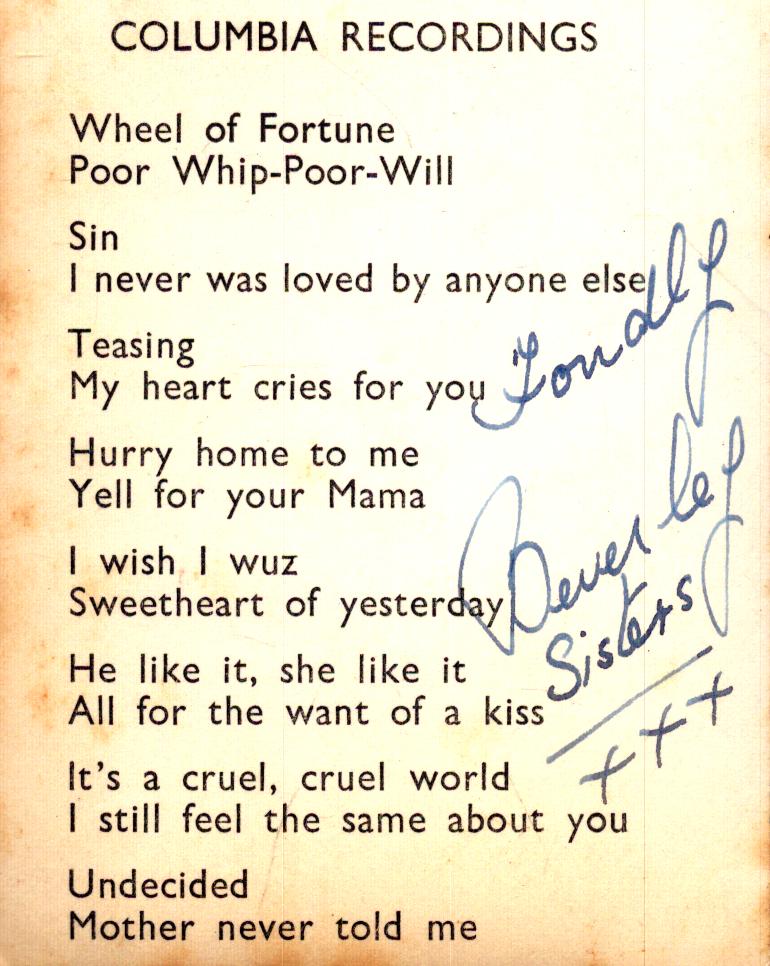 COLUMBIA RECORDINGS
Wheel of Fortune
Poor Whip-Poor-Will
Sin
I never was loved by anyone else
Teasing
My heart cries for you
Fondly
Hurry home to me
Yell for your Mama
Beverley
I wish I wuz
Sweetheart of yesterday
Sisters
He like it, she like it
All for the want of a kiss
+++
It's a cruel, cruel world
I still feel the same about you
Undecided
Mother never told me